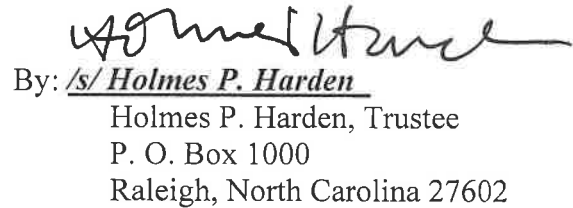 Holmes P. Harden
By: /s/ Holmes P. Harden
Holmes P. Harden, Trustee
P. O. Box 1000
Raleigh, North Carolina 27602